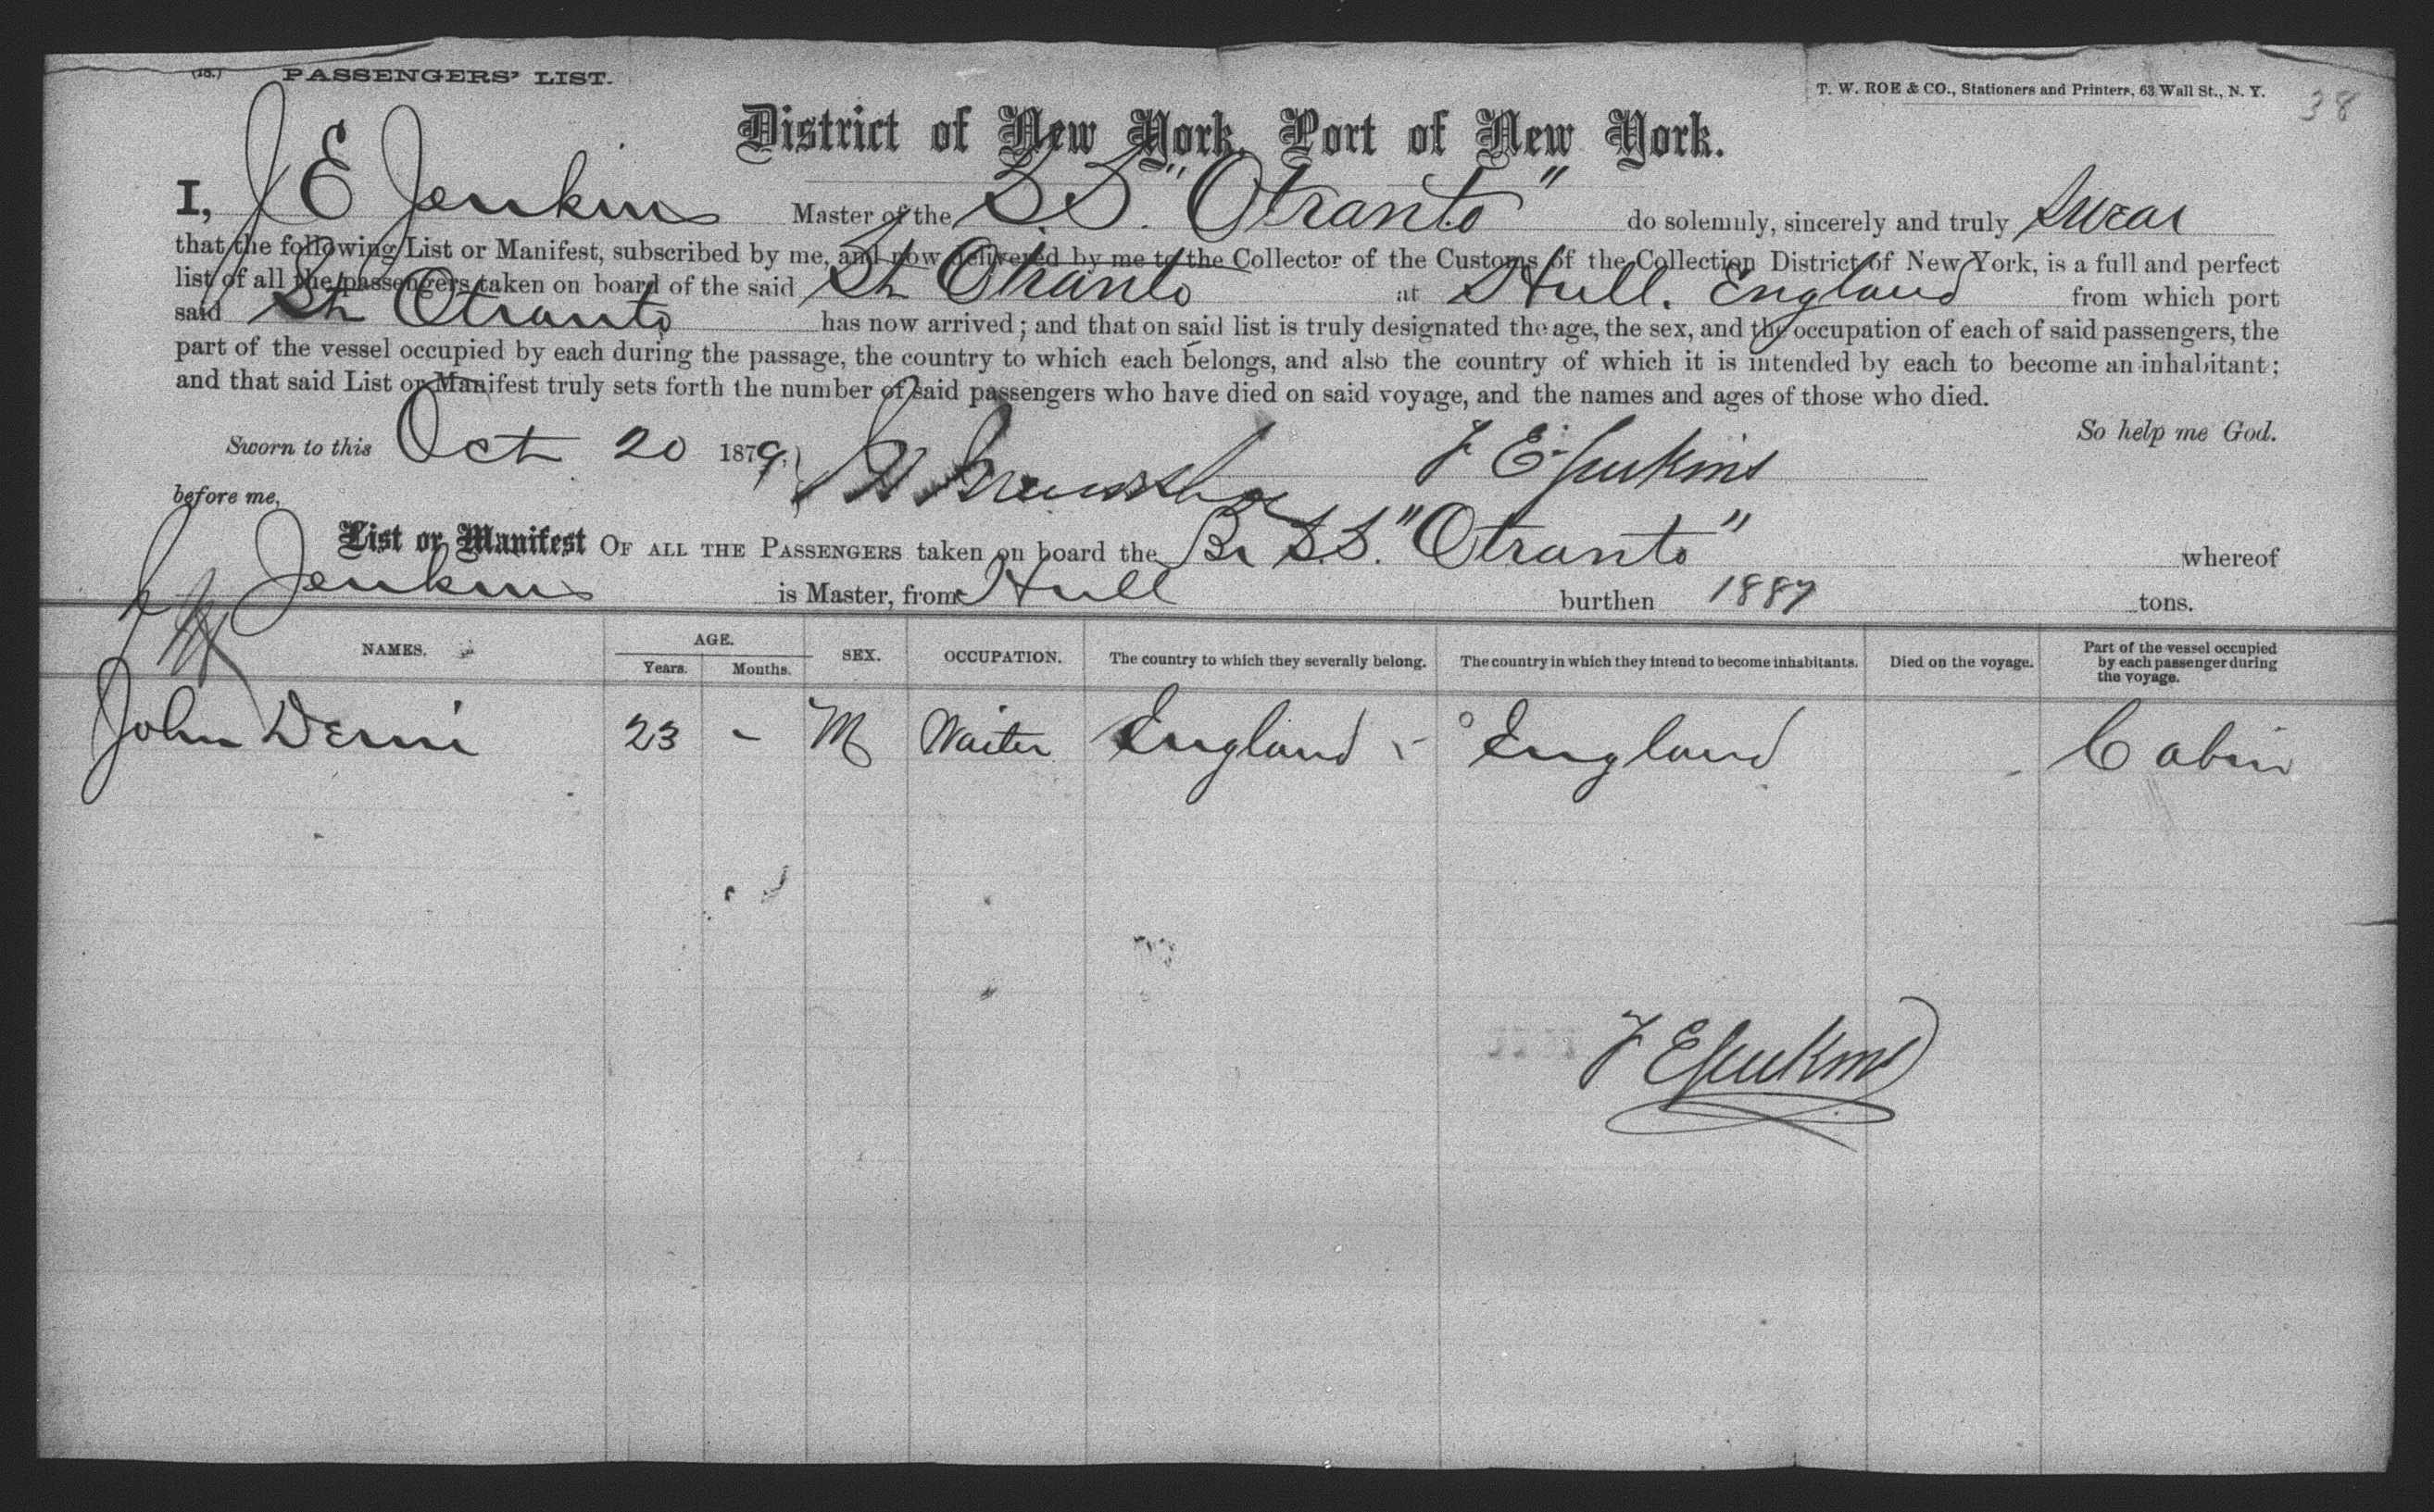 (18.) PASSENGERS' LIST.
T. W. ROE & CO., Stationers and Printers, 63 Wall St., N. Y.
38
District of New York, Port of New York.
I, J E Jenkins Master of the S.S. "Otranto" do solemnly, sincerely and truly swear
that the following List or Manifest, subscribed by me, and now delivered by me to the Collector of the Customs of the Collection District of New York, is a full and perfect
list of all the passengers taken on board of the said Str Otranto at Hull. England from which port
said Str Otranto has now arrived; and that on said list is truly designated the age, the sex, and the occupation of each of said passengers, the
part of the vessel occupied by each during the passage, the country to which each belongs, and also the country of which it is intended by each to become an inhabitant;
and that said List or Manifest truly sets forth the number of said passengers who have died on said voyage, and the names and ages of those who died.
So help me God.
Sworn to this Oct 20 1879,
J E Jenkins
before me,
List or Manifest OF ALL THE PASSENGERS taken on board the Br S.S. "Otranto" whereof
Jenkins is Master, from Hull burthen 1887 tons.
NAMES. AGE. Years. Months. SEX. OCCUPATION. The country to which they severally belong. The country in which they intend to become inhabitants. Died on the voyage. Part of the vessel occupied by each passenger during the voyage.
John 23 - M Waiter England - England Cabin
J E Jenkins